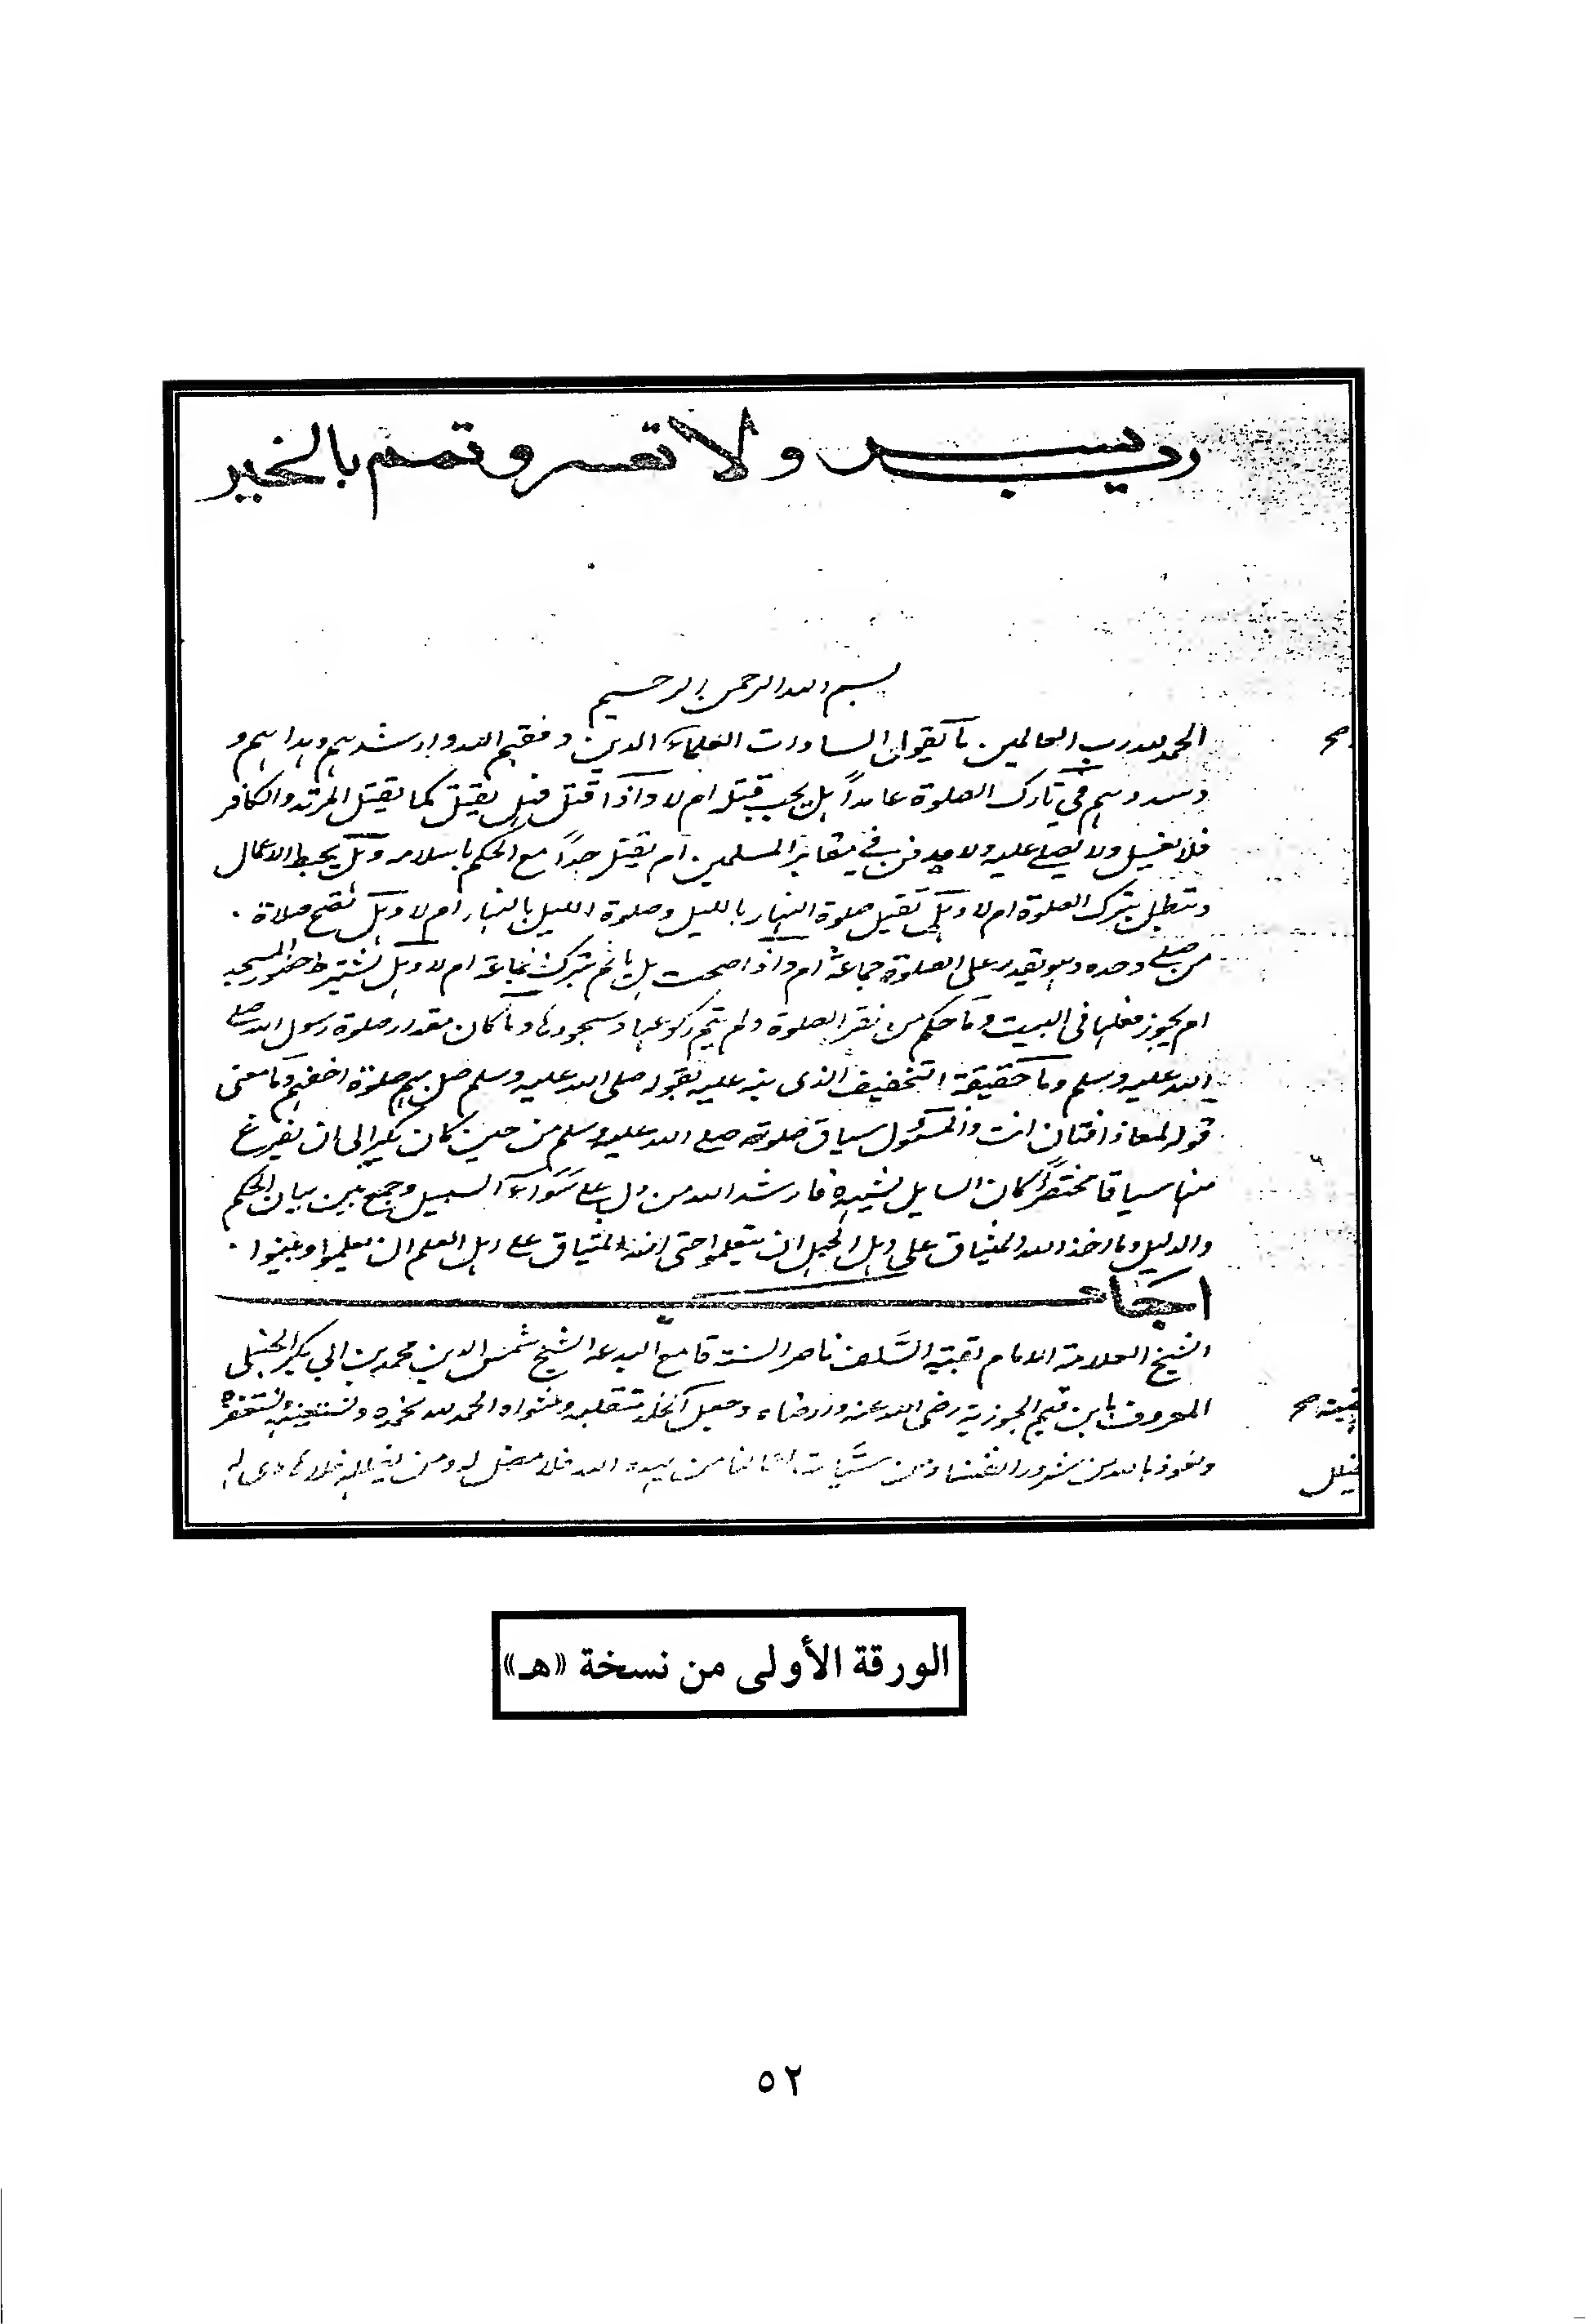 رب يسر ولا تعسر وتمم بالخير
بسم الله الرحمن الرحيم
الحمد لله رب العالمين ما يقول السادات العلماء الدين وفقهم الله وارشدهم وهداهم و
وسددهم في تارك الصلوة عامداً هل يجب قتله ام لا واذا قتل فهل يقتل كما يقتل المرتد والكافر
فلا يغسل ولا يصلى عليه ولا يدفن في مقابر المسلمين ام يقتل حداً مع الحكم باسلامه وهل يحبط الاعمال
وتبطل بترك الصلوة ام لا وهل تقبل صلوة النهار بالليل وصلوة الليل بالنهار ام لا وهل تصح صلاة
من صلى وحده وهو يقدر على الصلوة جماعة ام واذا صحت هل يأثم بترك جماعة ام لا وهل يشترط حضور المسجد
ام يجوز فعلها في البيت وما حكم من نقر الصلوة ولم يتم ركوعها وسجودها وما كان مقدار صلوة رسول الله صلى
الله عليه وسلم وما حقيقة التخفيف الذي نبه عليه بقوله صلى الله عليه وسلم صل بهم صلوة اخفهم وما معنى
قوله لمعاذ افتان انت والمسئول سياق صلوته صلى الله عليه وسلم من حين كان يكبر الى ان يفرغ
منها سياقا مختصراً كان السايل يشهده فارشد الله من دل على سواء السبيل وجمع بين بيان الحكم
والدليل وما اخذ الله الميثاق على اهل الجهل ان يتعلموا حتى اخذ الميثاق على اهل العلم ان يعلموا ويبينوا
اجاب
الشيخ العلامة الامام بقية السلف ناصر السنة قامع البدعة الشيخ شمس الدين محمد بن ابي بكر الحنبلي
المعروف بابن قيم الجوزية رضي الله عنه وارضاه وجعل الخلد متقلبه ومثواه الحمد لله نحمده ونستعينه ونستغفره
ونعوذ بالله من شرور انفسنا ومن سيئات اعمالنا من يهده الله فلا مضل له ومن يضلله فلا هادي له
الورقة الأولى من نسخة «هـ»
٥٢